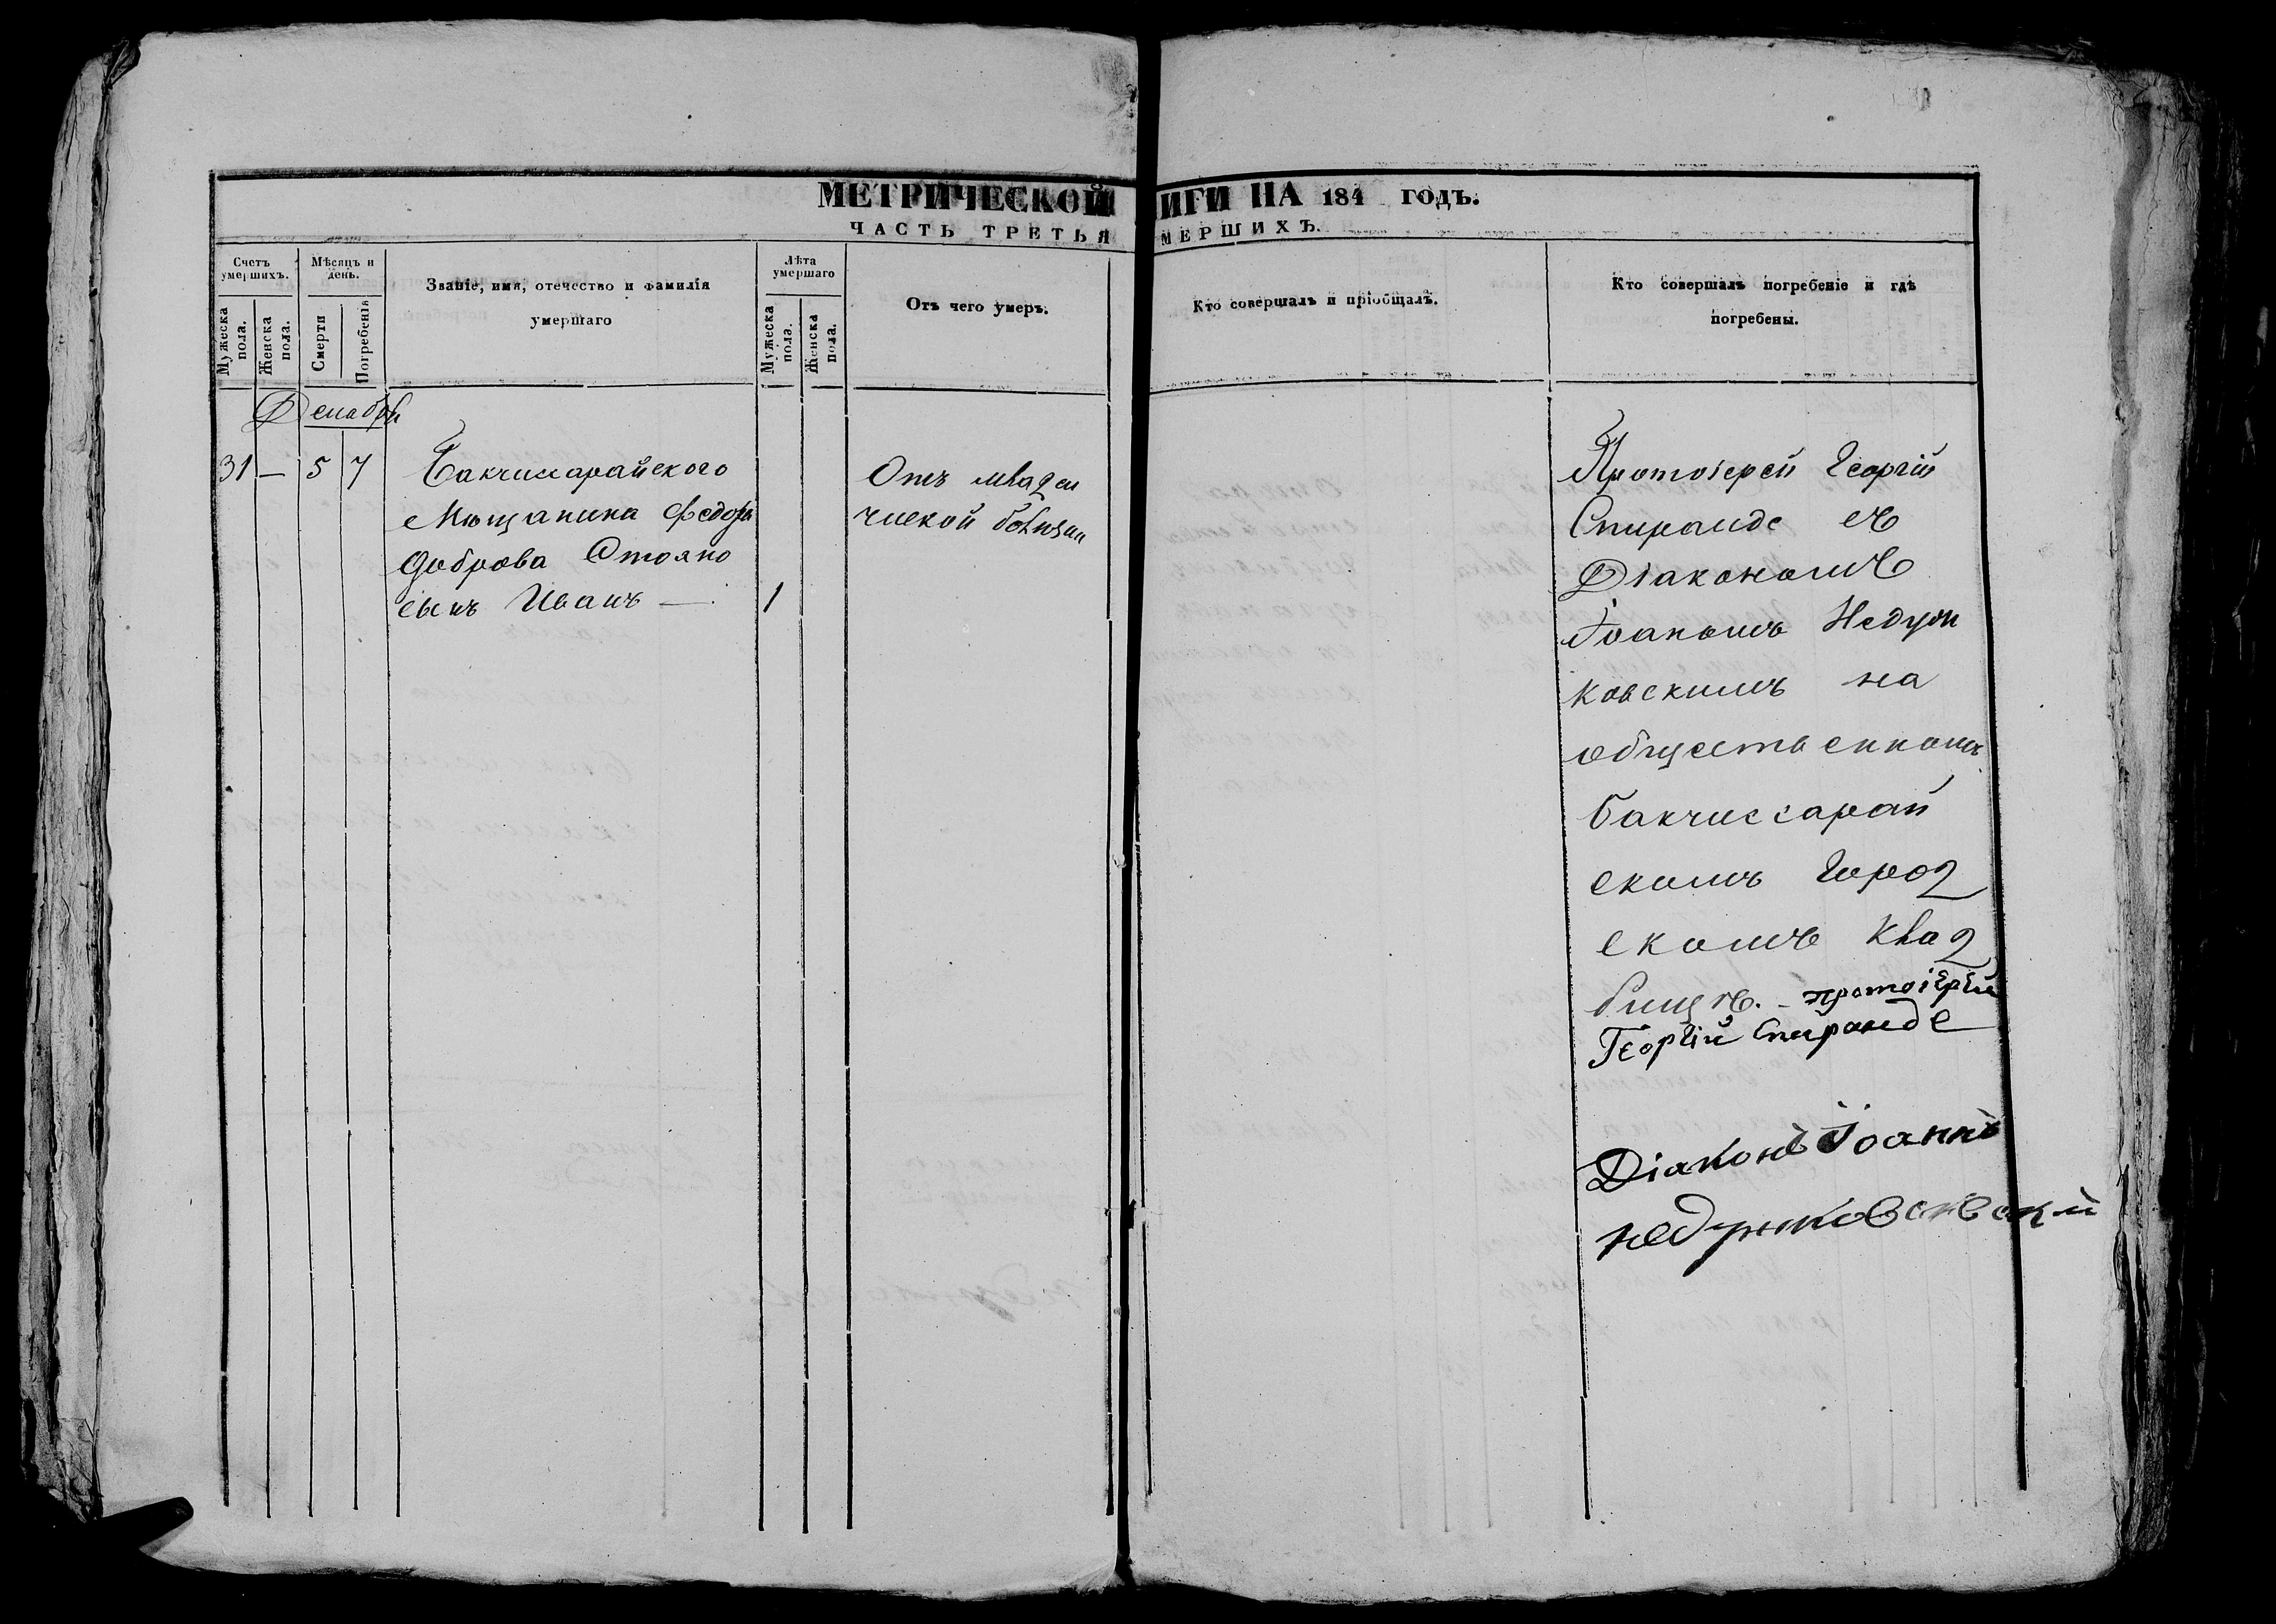 МЕТРИЧЕСКОЙ ИГИ НА 184 ГОДЪ.
ЧАСТЬ ТРЕТЬЯ МЕРШИХЪ.
Счетъ умершихъ.
Мужеска пола.
Женска пола.
Мѣсяцъ и день.
Смерти
Погребенія
Званіе, имя, отечество и фамилія
умершаго
Лѣта умершаго
Мужеска пола.
Женска пола.
Отъ чего умеръ.
Кто совершалъ и пріобщалъ.
Кто совершалъ погребеніе и гдѣ
погребены.
Декабрь
31 — 5 7
Бакчиссарайскаго
Мющанина Федора
Доброва Стояно
сынъ Иванъ — 1
Отъ младен
ческой болезни
Протоіерей Георгій
Спиранде съ
Діакономъ
Іоаномъ Недзѣл
ковскимъ на
общественномъ
бакчиссарай
скомъ Город
скомъ клад
бищѣ. – протоіерей
Георгій Спиранде
Діаконъ Іоаннъ